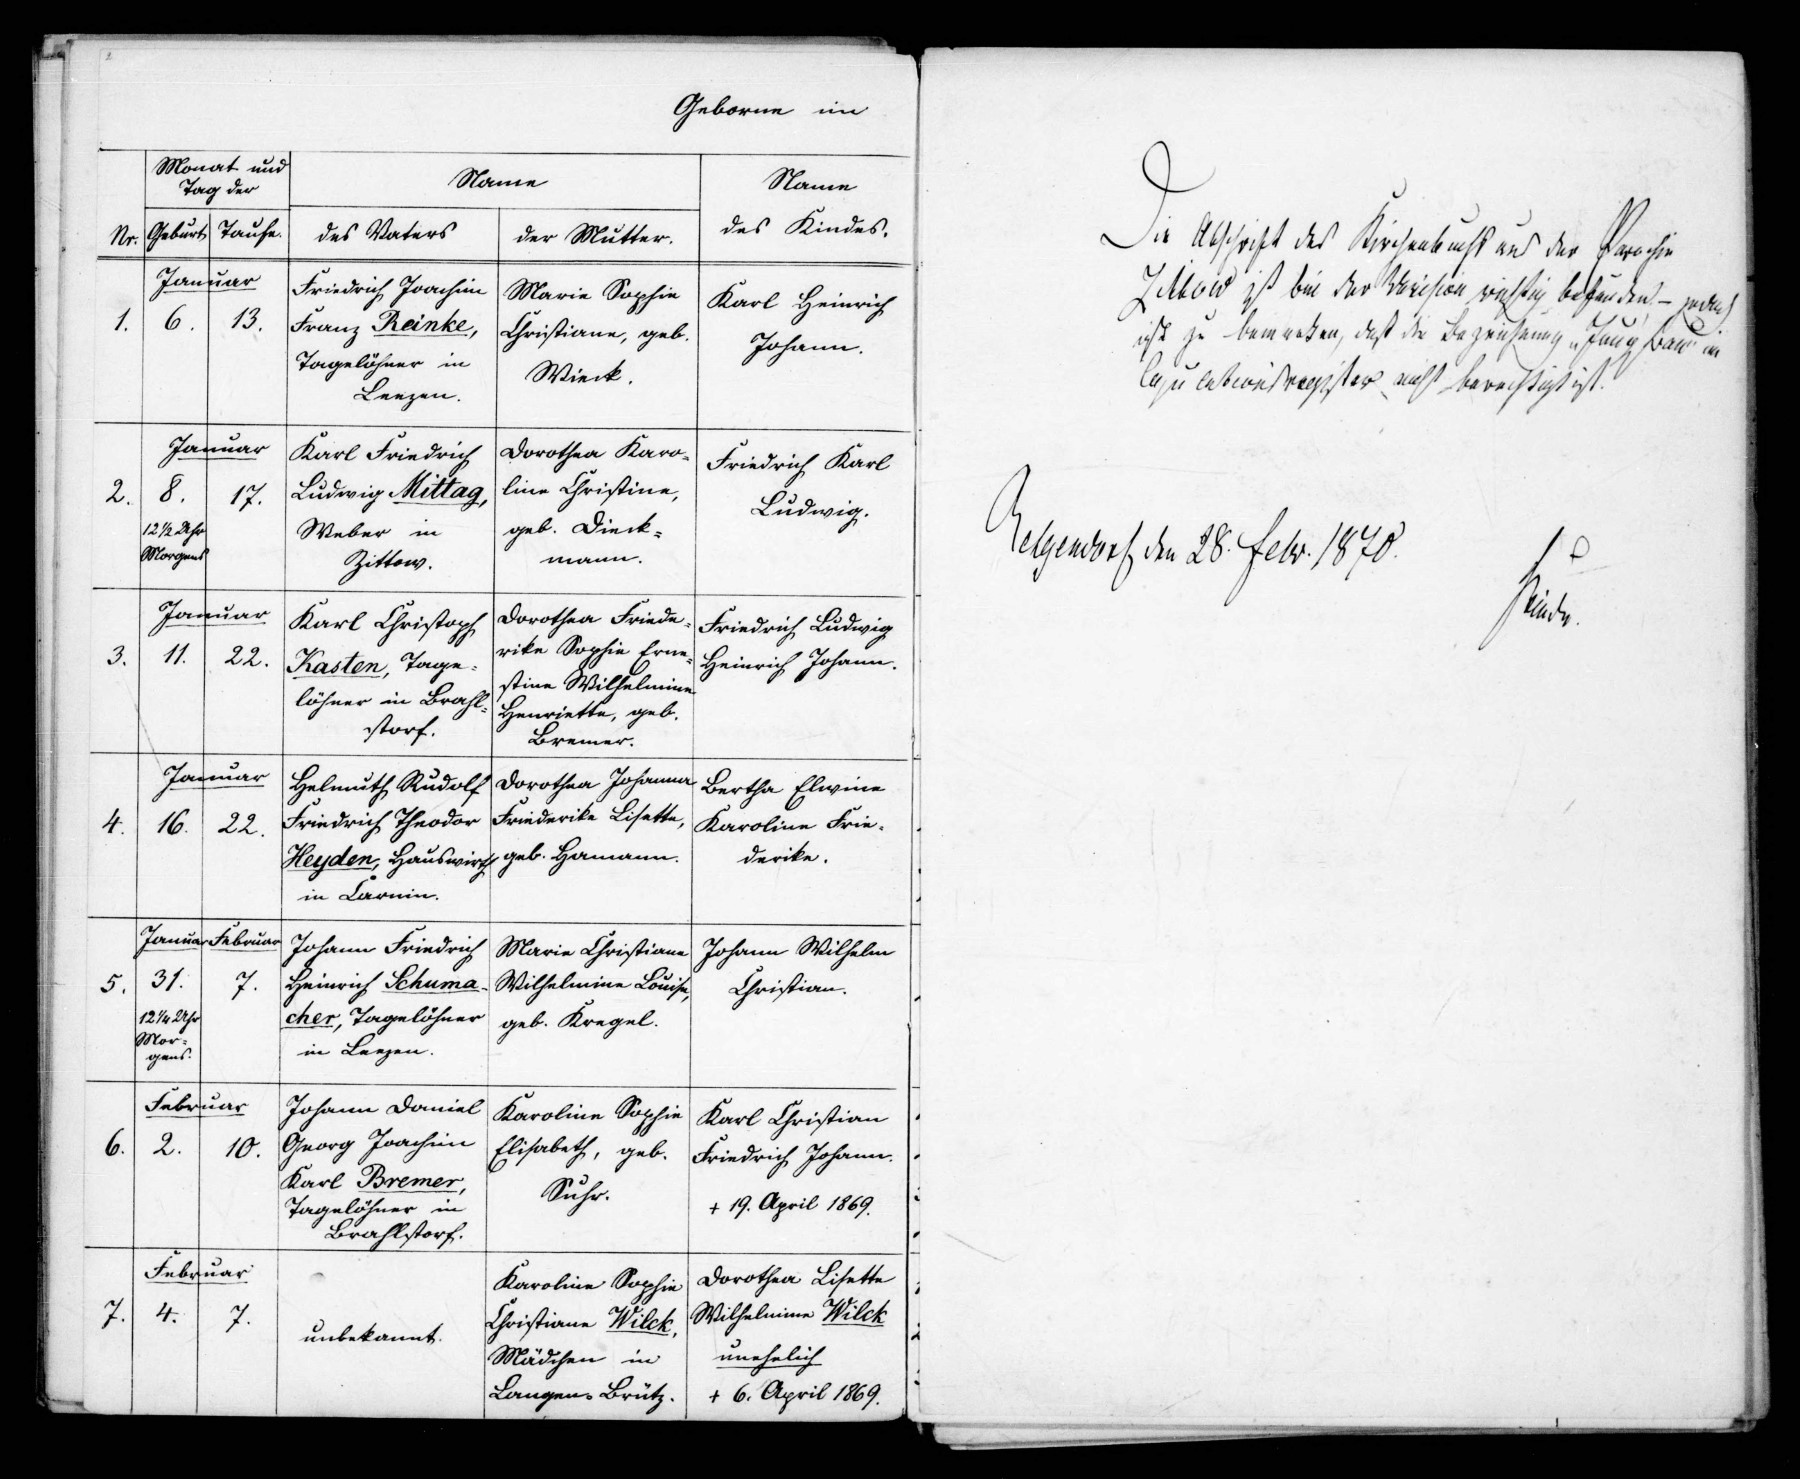 Geborne im
Monat und
Tag der
Name
Name
Nr.
Geburt
Taufe.
des Vaters
der Mutter.
des Kindes.
Januar
1.
6.
13.
Friedrich Joachim
Franz Reinke,
Tagelöhner in
Leezen.
Marie Sophie
Christiane, geb.
Wieck.
Karl Heinrich
Johann.
Januar
2.
8.
17.
12 1/2 Uhr
Morgens
Karl Friedrich
Ludwig Mittag,
Weber in
Zittow.
Dorothea Karo=
line Christine,
geb. Dieck=
mann.
Friedrich Karl
Ludwig.
Januar
3.
11.
22.
Karl Christoph
Kasten, Tage=
löhner in Brahl=
storf.
Dorothea Friede=
rike Sophie Erne=
stine Wilhelmine
Henriette, geb.
Bremer.
Friedrich Ludwig
Heinrich Johann.
Januar
4.
16.
22.
Helmuth Rudolf
Friedrich Theodor
Heyden, Hauswirth
in Carnin.
Dorothea Johanna
Friederike Lisette,
geb. Hamann.
Bertha Elwine
Karoline Frie=
derike.
Januar
Februar
5.
31.
7.
12 1/4 Uhr
Mor=
gens.
Johann Friedrich
Heinrich Schuma=
cher, Tagelöhner
in Leezen.
Marie Christiane
Wilhelmine Louise,
geb. Kregel.
Johann Wilhelm
Christian.
Februar
6.
2.
10.
Johann Daniel
Georg Joachim
Karl Bremer,
Tagelöhner in
Brahlstorf.
Karoline Sophie
Elisabeth, geb.
Suhr.
Karl Christian
Friedrich Johann.
+ 19. April 1869.
Februar
7.
4.
7.
unbekannt.
Karoline Sophie
Christiane Wilck,
Mädchen in
Langen=Brütz.
Dorothea Lisette
Wilhelmine Wilck
unehelich
+ 6. April 1869.
Die Abschrift des Kirchenbuchs aus der Parochie
Zittow ist bei der Revision richtig befunden, - jedoch
ist zu bemerken, daß die Bezeichnung "Jungfrau" im
Copulationsregister nicht berechtigt ist.
den 28. Febr. 1870.